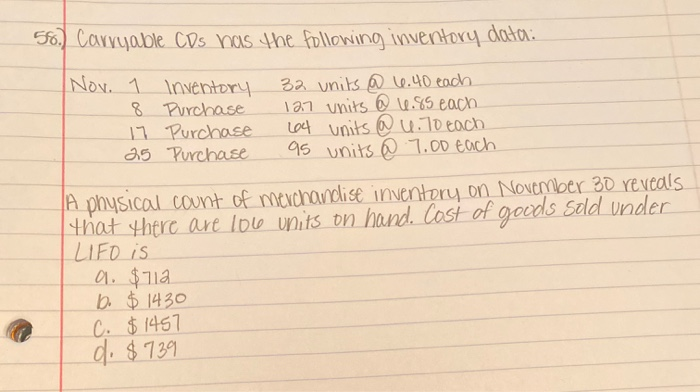 56.) Carryable CDs has the following inventory data:
Nov. 1 Inventory 32 units @ 6.40 each
8 Purchase 127 units @ 6.85 each
17 Purchase 64 units @ 6.70 each
25 Purchase 95 units @ 7.00 each
A physical count of merchandise inventory on November 30 reveals
that there are 106 units on hand. Cost of goods sold under
LIFO is
a. $712
b. $1430
c. $1457
d. $739